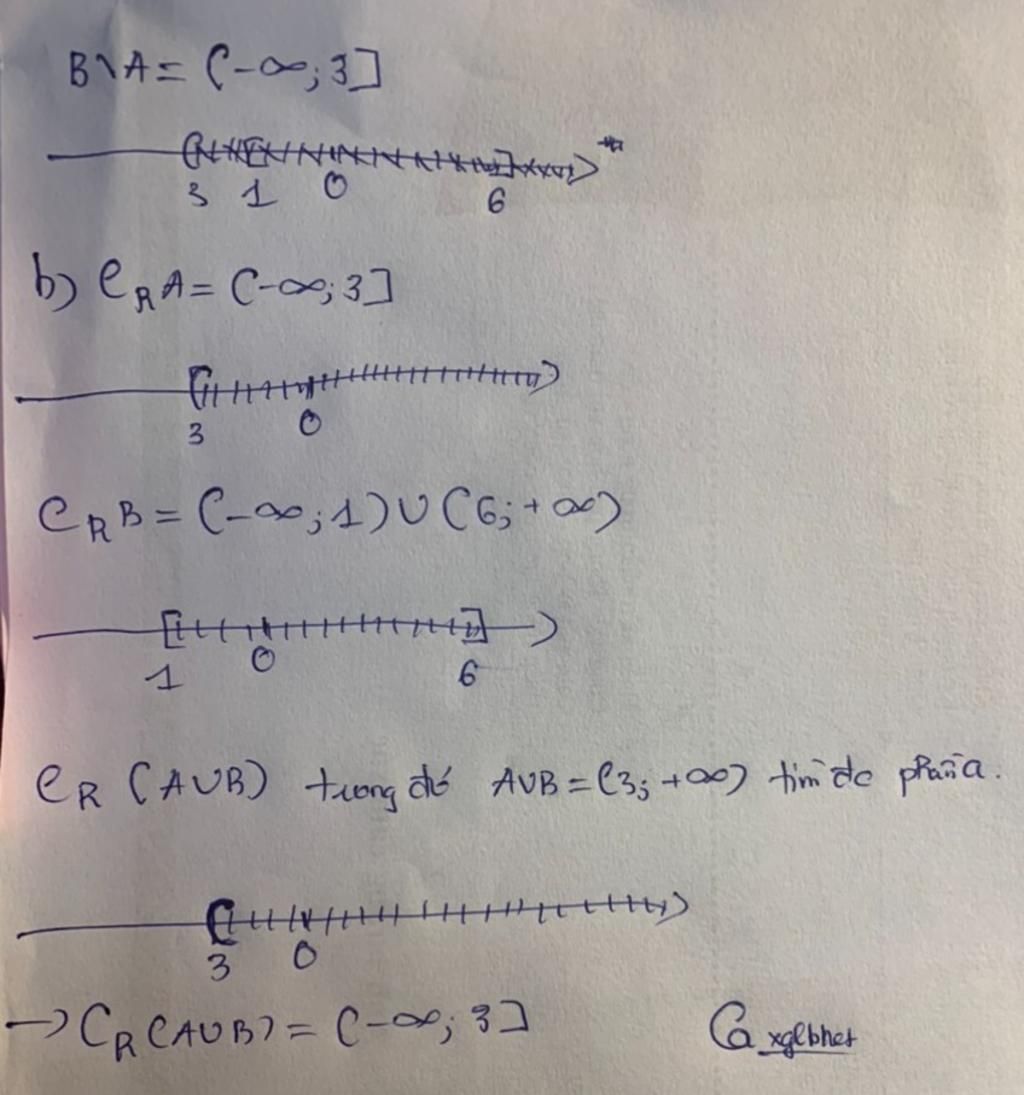 B\A = (-∞; 3]
3 1 0 6
b) CRA = (-∞; 3]
3 0
CRB = (-∞; 1) ∪ (6; +∞)
1 0 6
CR (A∪B) trong đó A∪B = (3; +∞) tìm đc phần a.
3 0
→ CR(A∪B) = (-∞; 3]